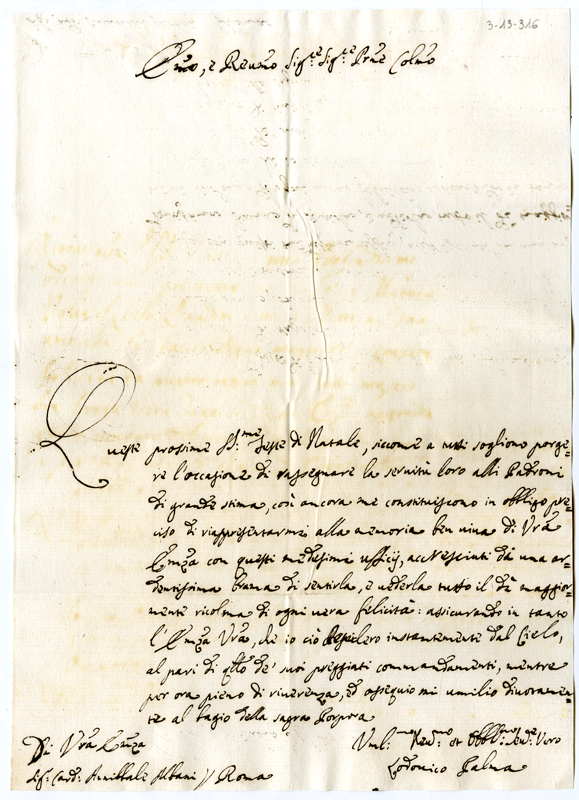 3-13-316
Emo, e Reumo Sig.re Sig.re Prne Colmo
Queste prossime SS.me Feste di Natale, siccome a tutti sogliono porge=
re l'occasione di rassegnare la seruitù loro alli Padroni
di grande stima, così ancora me constituiscono in obbligo pre=
ciso di riappresentarmi alla memoria ben uiua di Vrã
Emza con questi medesimi ufficij, accresciuti da una ar=
dentissima brama di sentirla, e uederla tutto il dì maggior=
mente ricolma di ogni uera felicità: assicurando in tanto
l'Emza Vrã, che io ciò desidero instantemente dal Cielo,
al pari di qllo de' suoi preggiati commandamenti, mentre
per ora pieno di riuerenza, ed ossequio mi umilio diuotamen=
te al bagio della sagra Porpora
Di Vrã Emza
Sig: Card: Annibale Albani // Roma
Uml:mo Deu:mo et Obblig:mo Seru:re Vero
Lodouico Palma